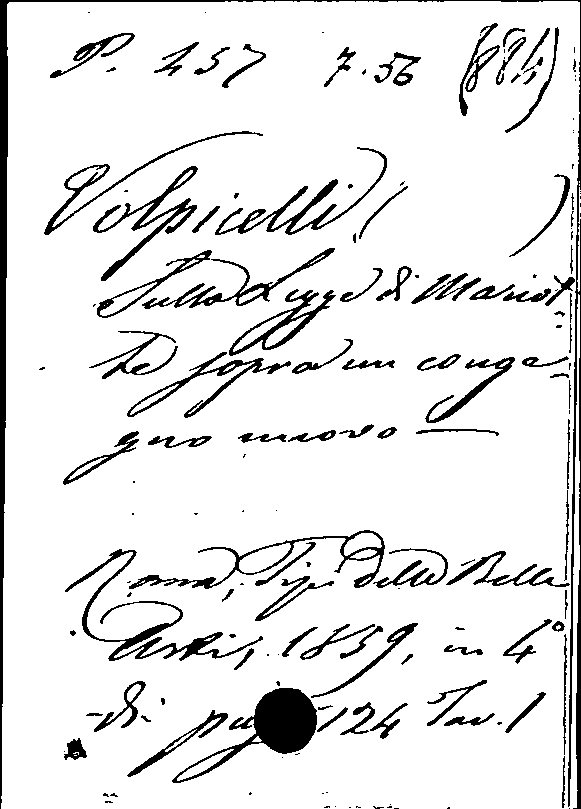 P. 457 7.56 (884)
Volpicelli ( )
Sulla Legge di Mariot=
te sopra un conge=
gno nuovo —
Roma, Tip. delle Belle
Arti, 1859, in 4°
di pag. 124 Tav. 1